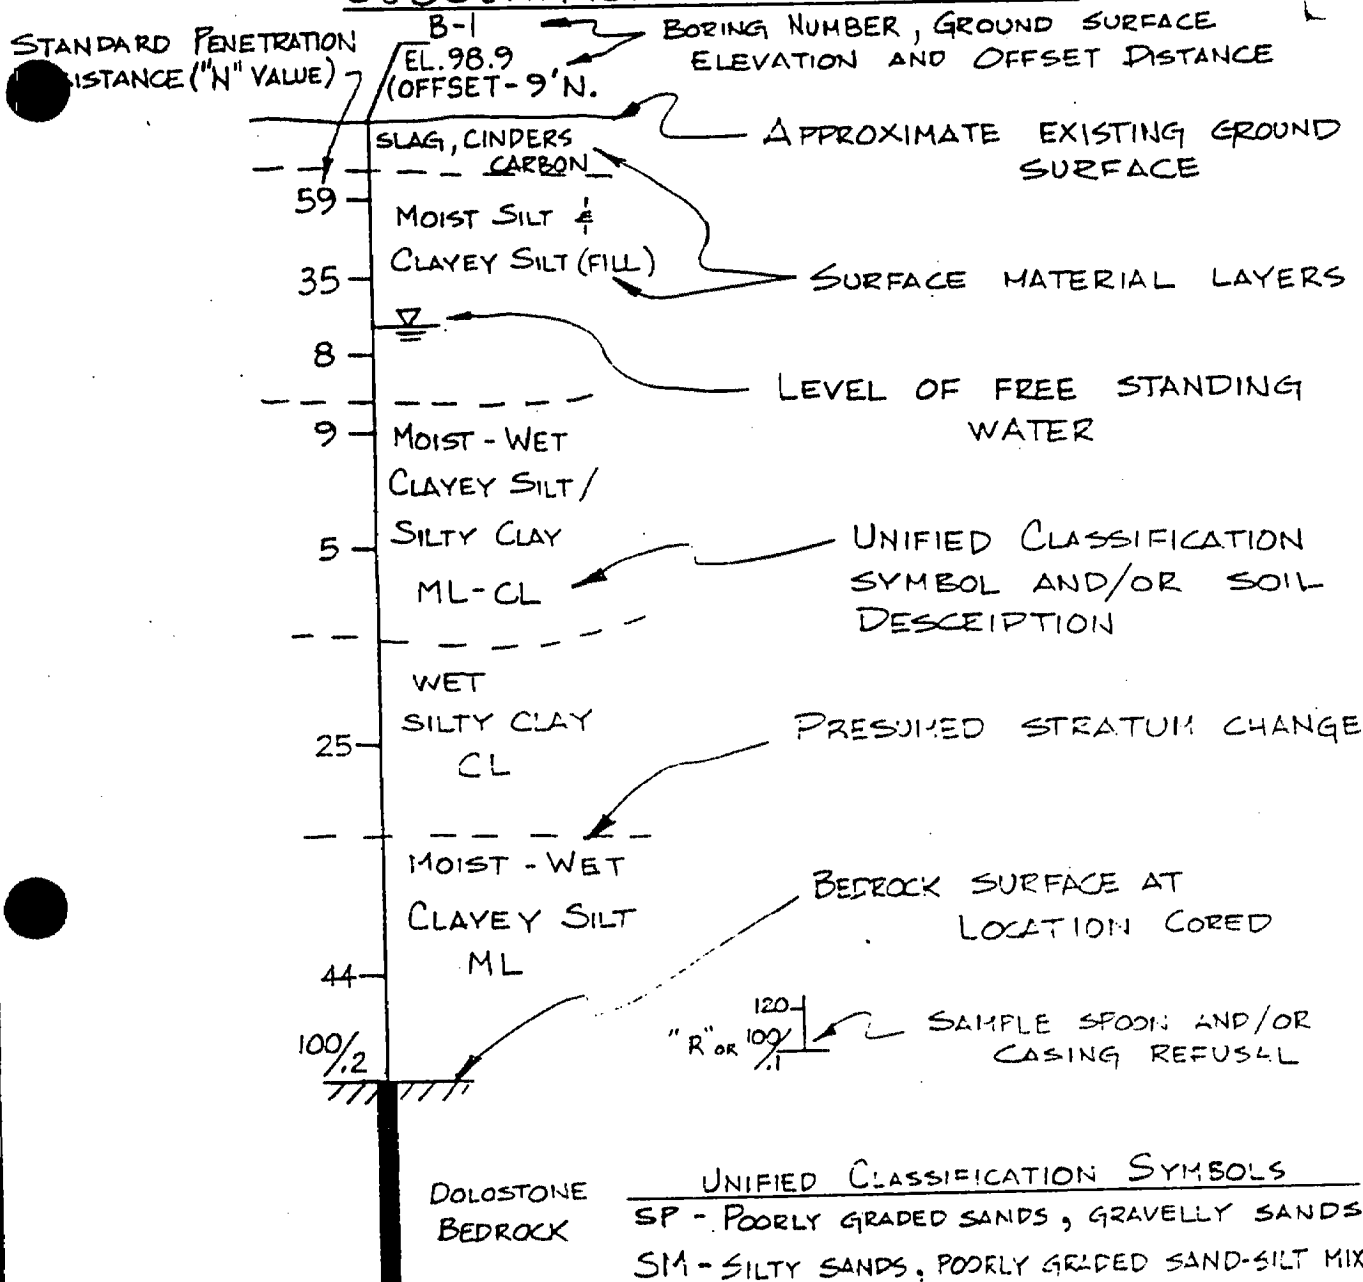 B-1
EL. 98.9
(OFFSET - 9'N.
STANDARD PENETRATION
ISTANCE ("N" VALUE)
BORING NUMBER, GROUND SURFACE
ELEVATION AND OFFSET DISTANCE
APPROXIMATE EXISTING GROUND
SURFACE
SLAG, CINDERS
CARBON
59
MOIST SILT &
CLAYEY SILT (FILL)
35
SURFACE MATERIAL LAYERS
8
LEVEL OF FREE STANDING
WATER
9
MOIST - WET
CLAYEY SILT/
SILTY CLAY
5
ML-CL
UNIFIED CLASSIFICATION
SYMBOL AND/OR SOIL
DESCRIPTION
WET
SILTY CLAY
25
CL
PRESUMED STRATUM CHANGE
MOIST - WET
CLAYEY SILT
ML
44
BEDROCK SURFACE AT
LOCATION CORED
100/.2
120
"R" OR 100/.1
SAMPLE SPOON AND/OR
CASING REFUSAL
DOLOSTONE
BEDROCK
UNIFIED CLASSIFICATION SYMBOLS
SP - POORLY GRADED SANDS, GRAVELLY SANDS
SM - SILTY SANDS, POORLY GRADED SAND-SILT MIX